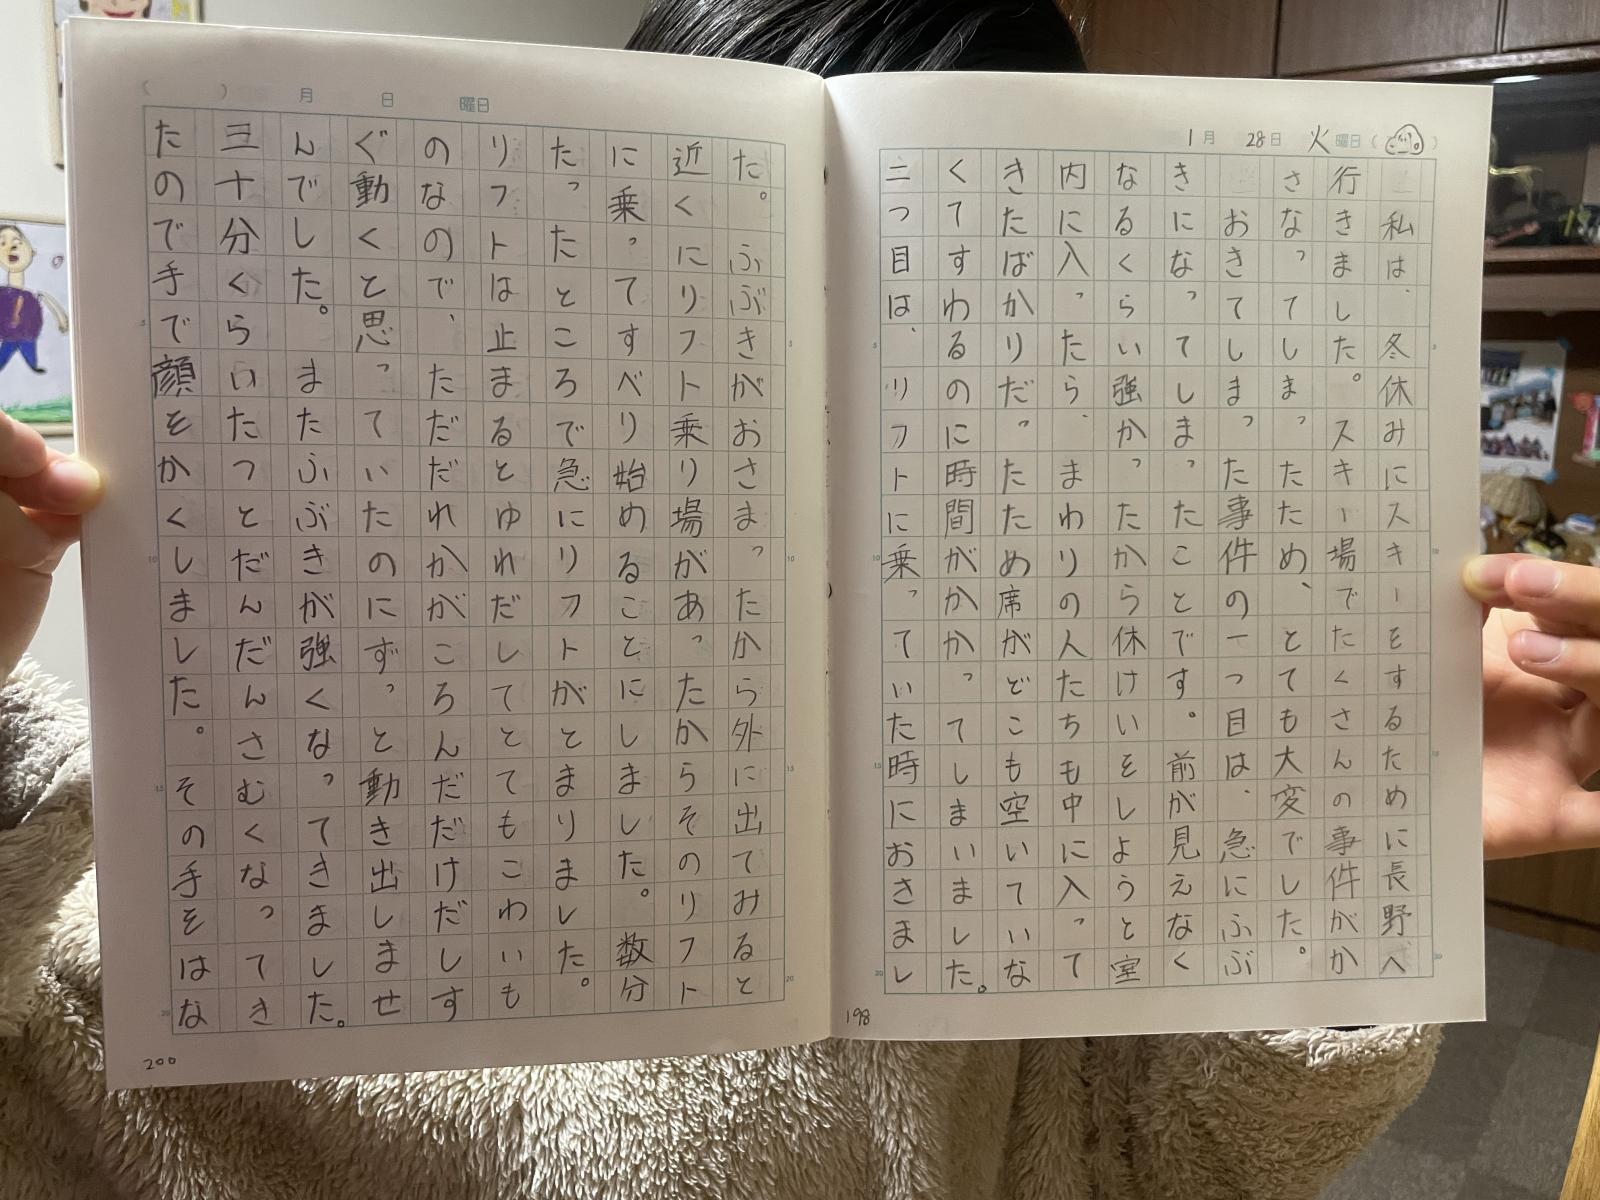 1月 28日 火曜日( )
私は、冬休みにスキーをするために長野へ
行きました。スキー場でたくさんの事件がか
さなってしまったため、とても大変でした。
おきてしまった事件の一つ目は、急にふぶ
きになってしまったことです。前が見えなく
なるくらい強かったから休けいをしようと室
内に入ったら、まわりの人たちも中に入って
きたばかりだったため席がどこも空いていな
くてすわるのに時間がかかってしまいました。
二つ目は、リフトに乗っていた時におきまし
198
( ) 月 日 曜日
た。ふぶきがおさまったから外に出てみると
近くにリフト乗り場があったからそのリフト
に乗ってすべり始めることにしました。数分
たったところで急にリフトがとまりました。
リフトは止まるとゆれだしてとてもこわいも
のなので、ただだれかがころんだだけだしす
ぐ動くと思っていたのにずっと動き出しませ
んでした。またふぶきが強くなってきました。
三十分くらいたつとだんだんさむくなってき
たので手で顔をかくしました。その手をはな
200